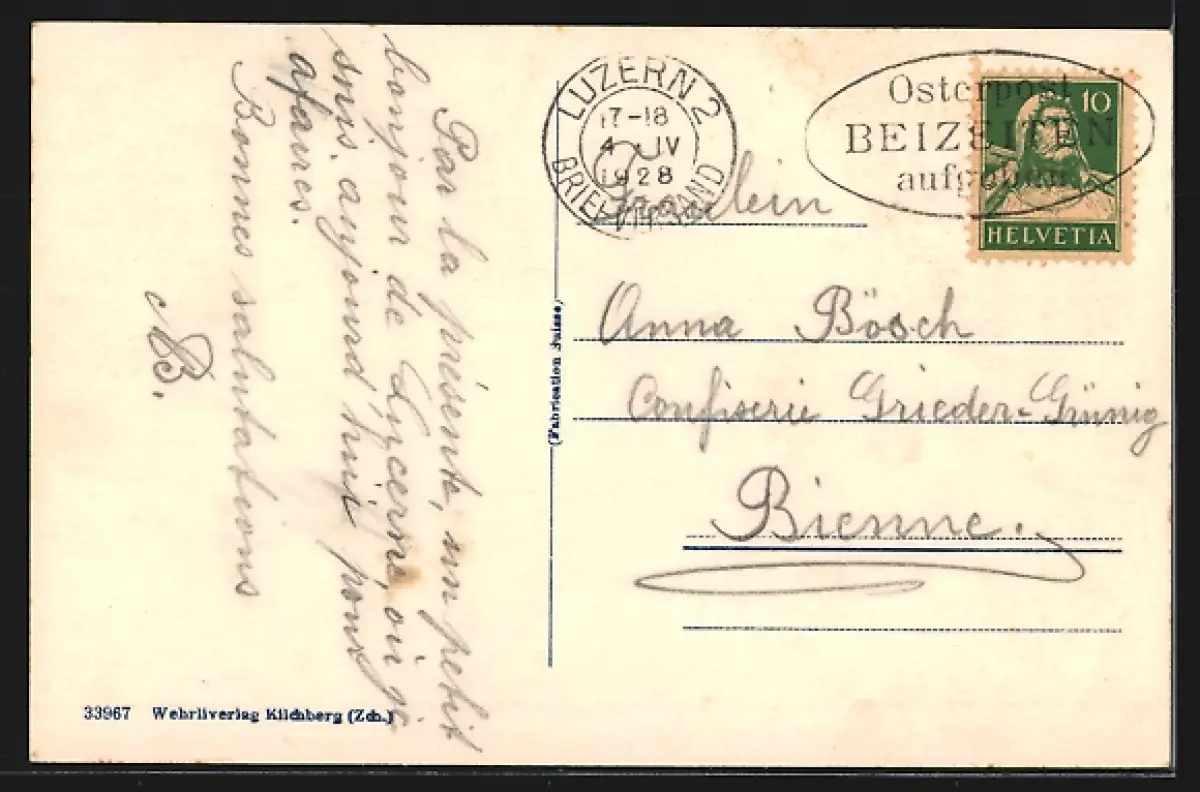 Par la présente, un petit
bonjour de Lucerne, où je
suis aujourd'hui pour
afaires.
Bonnes salutations
AB.
33967 Wehrliverlag Kilchberg (Zch.)
(Fabrication Suisse)
LUZERN 2
17-18
4 IV
1928
BRIEFVERSAND
Osterpost
BEIZEITEN
aufgeben
10
HELVETIA
Fräulein
Anna Bösch
Confiserie Grieder-Günnig
Bienne.